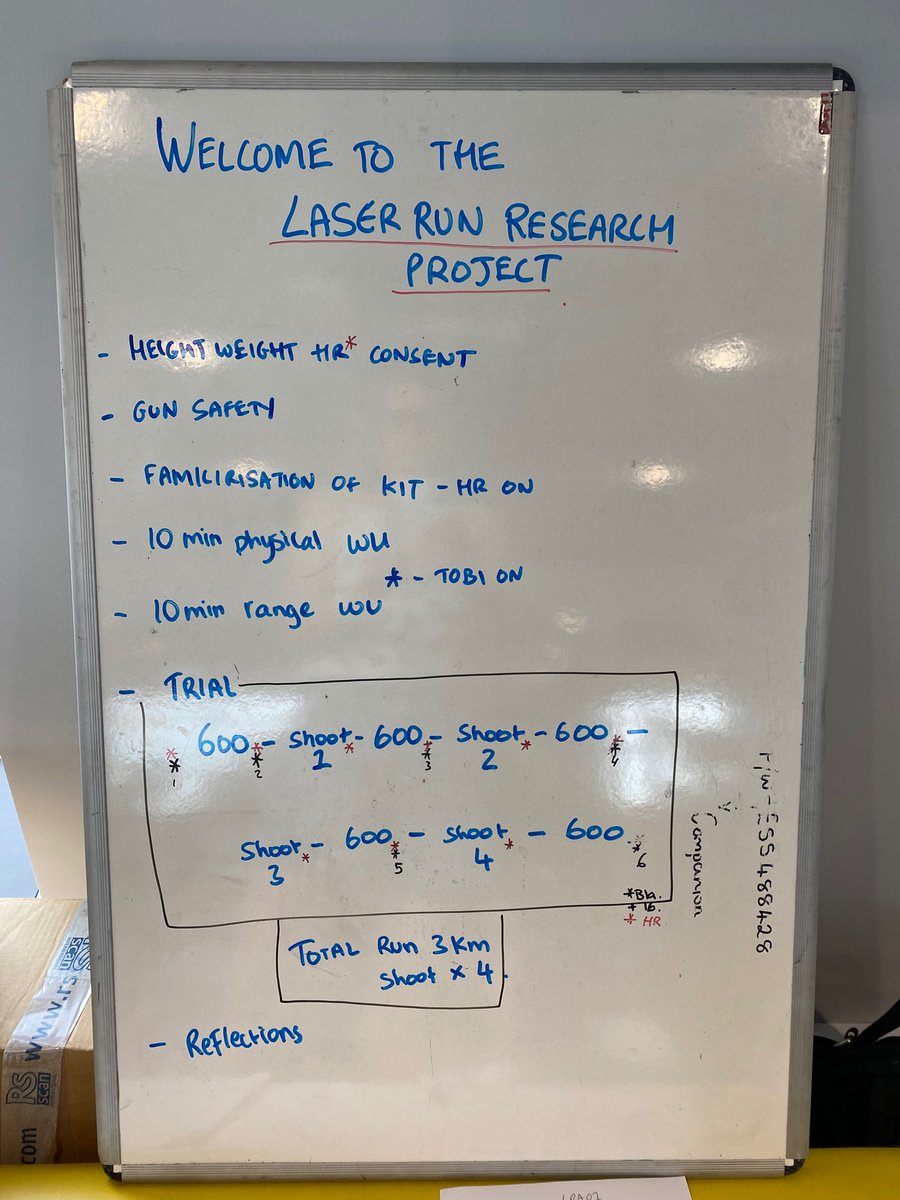 WELCOME TO THE
LASER RUN RESEARCH
PROJECT
- HEIGHT WEIGHT HR* CONSENT
- GUN SAFETY
- FAMILIRISATION OF KIT - HR ON
- 10 min physical WU
* - TOBI ON
- 10 min range WU
- TRIAL
600 - Shoot - 600 - Shoot - 600 -
1 2
* 1 * 2 * * 3 * * 4
Shoot - 600 - Shoot - 600
3 4
* * 5 * * 6
* Bla.
* HR
TOTAL RUN 3KM
Shoot x 4.
- Reflections
companion
P/W - ESS488428
www.rs
RS
scan
com